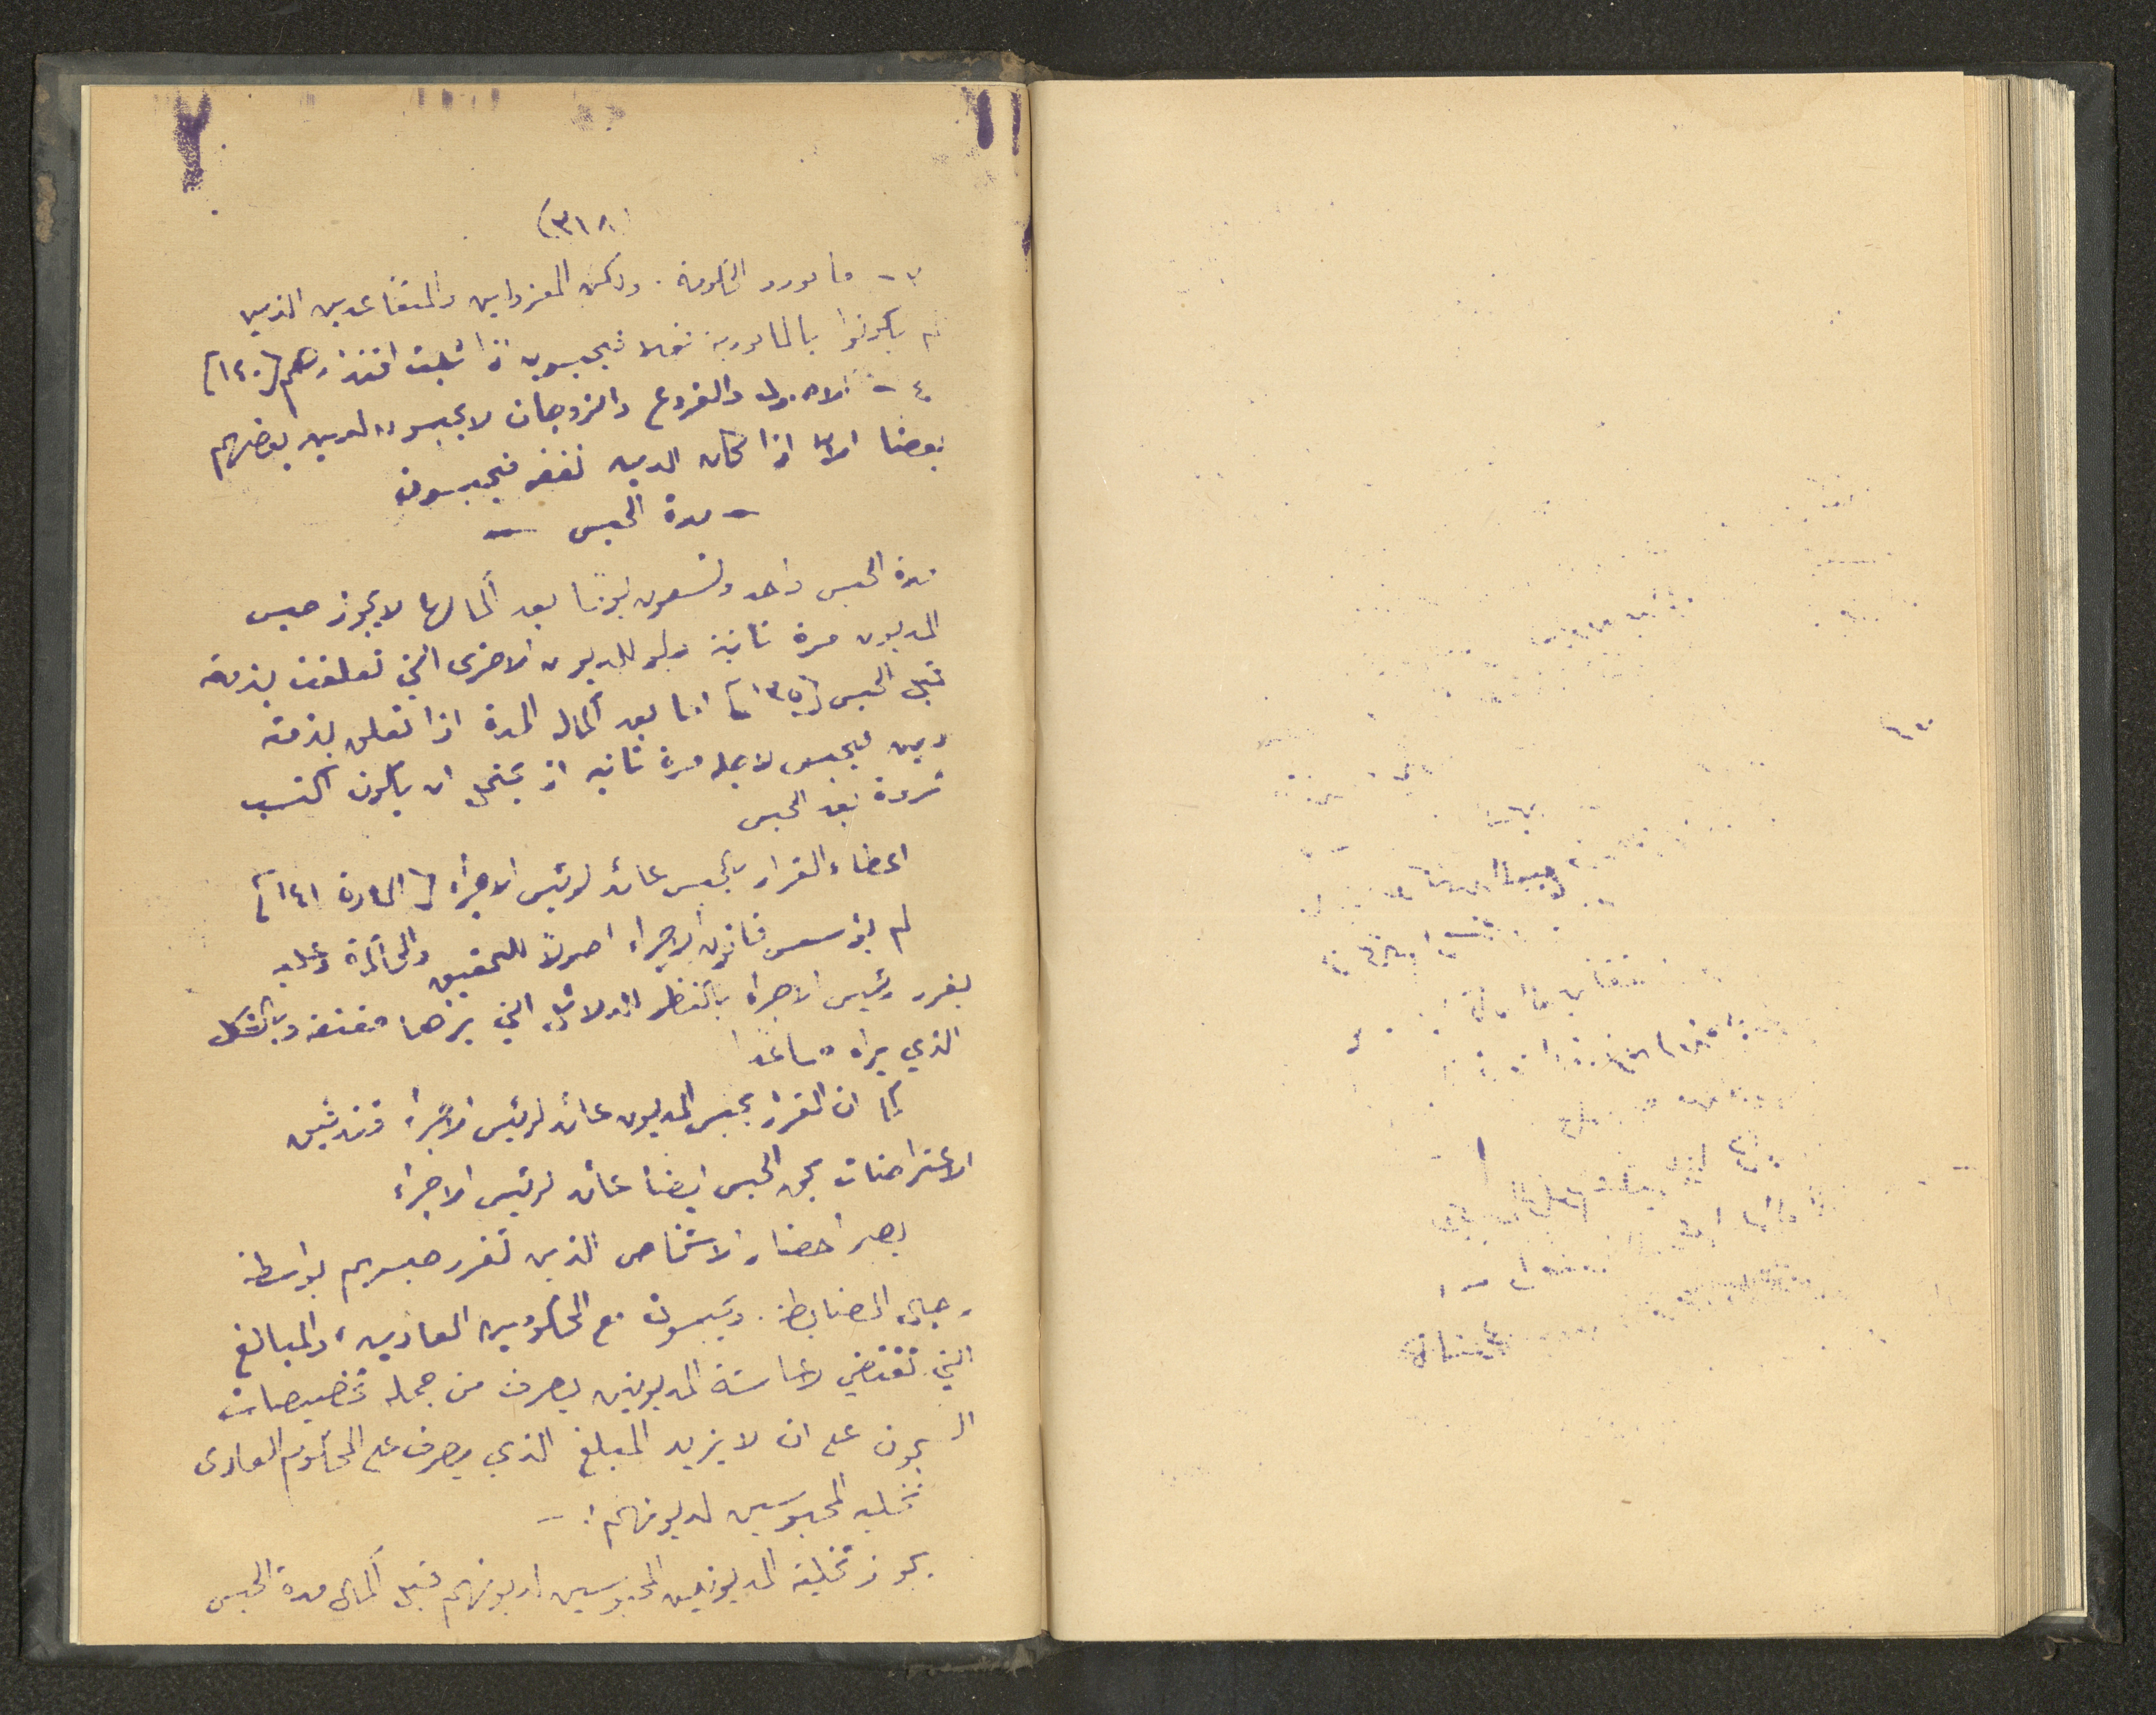 (٣١٨)
٣- مامورو الحكومة. ولكن المعزولين والمتقاعدين الذين
لم يكونوا بالمامورية فعلا فيحبسون اذا ثبت اقتدارهم [١٤٠]
٤- الاصول والفروع والزوجان لا يحبسون لدين بعضهم
بعضا الا اذا كان الدين نفقة فيحبسون
- مدة الحبس -
مدة الحبس واحد وتسعون يوما بعد اكمالها لا يجوز حبس
المديون مرة ثانية ولو للديون الاخرى التي تعلقت بذمته
قبل الحبس [١٣٥] اما بعد اكمال المدة اذا تعلق بذمته
دين فيحبس لاجله مرة ثانية اذ يحتمل ان يكون اكتسب
ثروة بعد الحبس
اعطاء القرار بالحبس عائد لرئيس الاجراء [المادة ١٤١]
لم يؤسس قانون الاجراء اصولا للتحقيق والمحاكمة وعليه
يقرر رئيس الاجراء بالنظر للدلائل التي يراها مقنعة وبالشكل
الذي يراه مساعدا
كما ان القرار بحبس المديون عائد لرئيس الاجراء فتدقيق
الاعتراضات بحق الحبس ايضا عائد لرئيس الاجراء
يصير احضار الاشخاص الذين تقرر حبسهم بواسطة
رجال الضابطة. ويحبسون مع المحكومين العاديين، والمبالغ
التي تقتضي لاعاشة المديونين يصرف من جملة تخصيصات
السجون على ان لا يزيد المبلغ الذي يصرف على المحكوم العادى
تخلية المحبوسين لديونهم: -
يجوز تخلية المديونين المحبوسين لديونهم قبل اكمال مدة الحبس